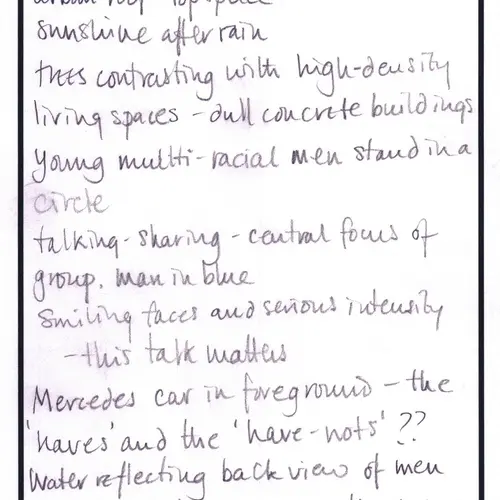 urban roof top space
sunshine after rain
trees contrasting with high-density
living spaces - dull concrete buildings
young multi-racial men stand in a
circle
talking - sharing - central focus of
group, man in blue
Smiling faces and serious intensity
- this talk matters
Mercedes car in foreground - the
'haves' and the 'have-nots' ??
Water reflecting back view of men